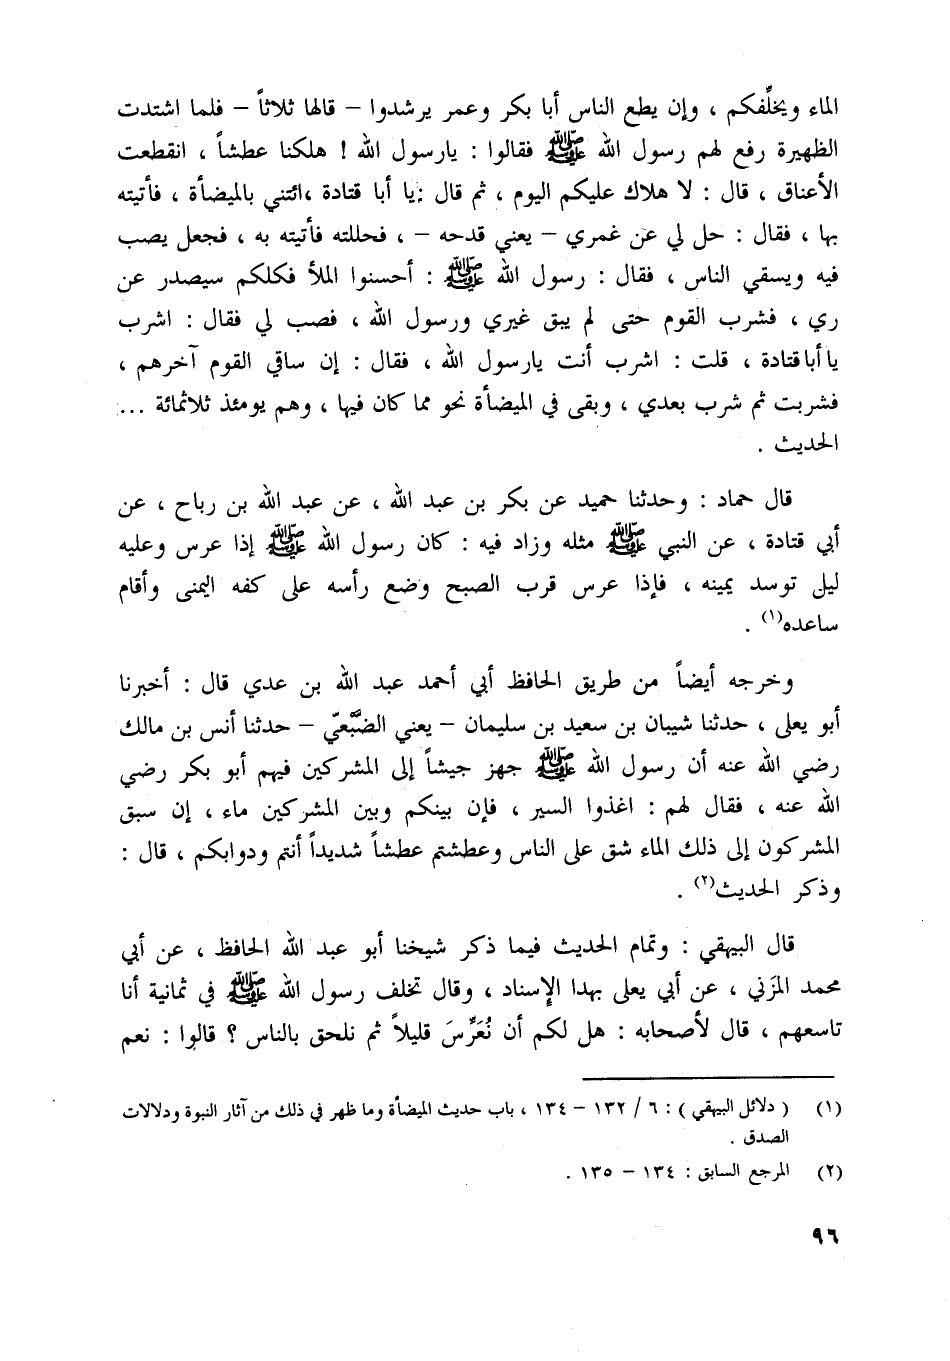 الماء ويخلِّفكم ، وإن يطع الناس أبا بكر وعمر يرشدوا – قالها ثلاثاً – فلما اشتدت
الظهيرة رفع لهم رسول الله ﷺ فقالوا : يارسول الله ! هلكنا عطشاً ، انقطعت
الأعناق ، قال : لا هلاك عليكم اليوم ، ثم قال :يا أبا قتادة ،ائتني بالميضأة ، فأتيته
بها ، فقال : حل لي عن غمري – يعني قدحه – ، فحللته فأتيته به ، فجعل يصب
فيه ويسقي الناس ، فقال : رسول الله ﷺ : أحسنوا الملأ فكلكم سيصدر عن
ري ، فشرب القوم حتى لم يبق غيري ورسول الله ، فصب لي فقال : اشرب
يا أبا قتادة ، قلت : اشرب أنت يارسول الله ، فقال : إن ساقي القوم آخرهم ،
فشربت ثم شرب بعدي ، وبقى في الميضأة نحو مما كان فيها ، وهم يومئذ ثلاثمائة ...
الحديث .
قال حماد : وحدثنا حميد عن بكر بن عبد الله ، عن عبد الله بن رباح ، عن
أبي قتادة ، عن النبي ﷺ مثله وزاد فيه : كان رسول الله ﷺ إذا عرس وعليه
ليل توسد يمينه ، فإذا عرس قرب الصبح وضع رأسه على كفه اليمنى وأقام
ساعده(١) .
وخرجه أيضاً من طريق الحافظ أبي أحمد عبد الله بن عدي قال : أخبرنا
أبو يعلى ، حدثنا شيبان بن سعيد بن سليمان – يعني الضَّبَّعيّ – حدثنا أنس بن مالك
رضي الله عنه أن رسول الله ﷺ جهز جيشاً إلى المشركين فيهم أبو بكر رضي
الله عنه ، فقال لهم : اغذوا السير ، فإن بينكم وبين المشركين ماء ، إن سبق
المشركون إلى ذلك الماء شق على الناس وعطشتم عطشاً شديداً أنتم ودوابكم ، قال :
وذكر الحديث(٢) .
قال البيهقي : وتمام الحديث فيما ذكر شيخنا أبو عبد الله الحافظ ، عن أبي
محمد المزَني ، عن أبي يعلى بهدا الإسناد ، وقال تخلف رسول الله ﷺ في ثمانية أنا
تاسعهم ، قال لأصحابه : هل لكم أن نُعَرِّسَ قليلاً ثم نلحق بالناس ؟ قالوا : نعم
(١) ( دلائل البيهقي ) : ٦ / ١٣٢ – ١٣٤ ، باب حديث الميضأة وما ظهر في ذلك من آثار النبوة ودلالات
الصدق .
(٢) المرجع السابق : ١٣٤ – ١٣٥ .
٩٦